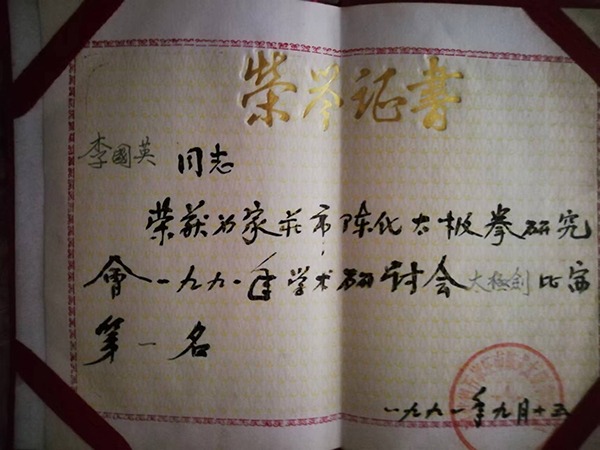 荣誉证书
李國英 同志
荣获石家莊市陈氏太极拳研究
會一九九一年学术研讨会太極剑比赛
第一名
一九九一年九月十五